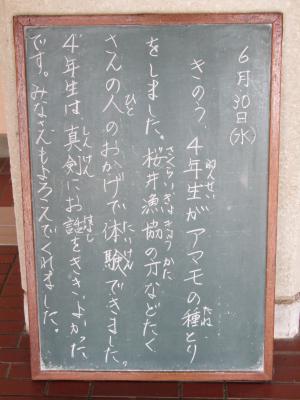 6月30日(水)
きのう、4年生がアマモの種とり
をしました。桜井漁協の方などたく
さんの人のおかげで体験できました。
4年生は、真剣にお話をきき、よかった
です。みなさんもよろこんでくれました。